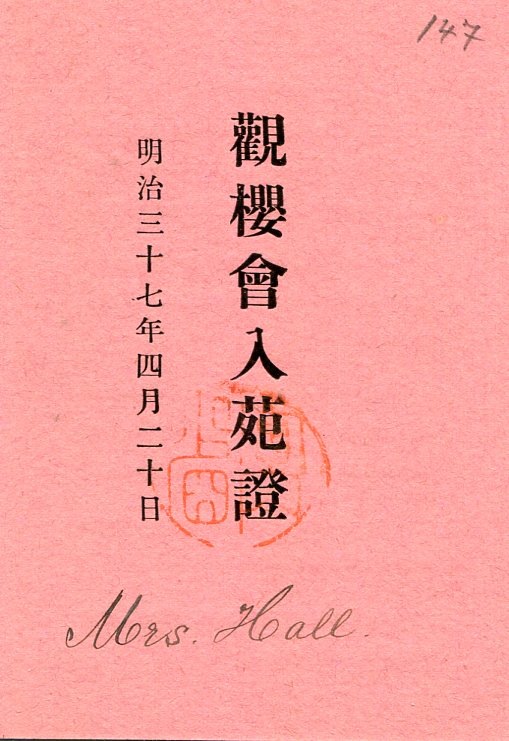 147
觀櫻會入苑證
明治三十七年四月二十日
Mrs. Hall.